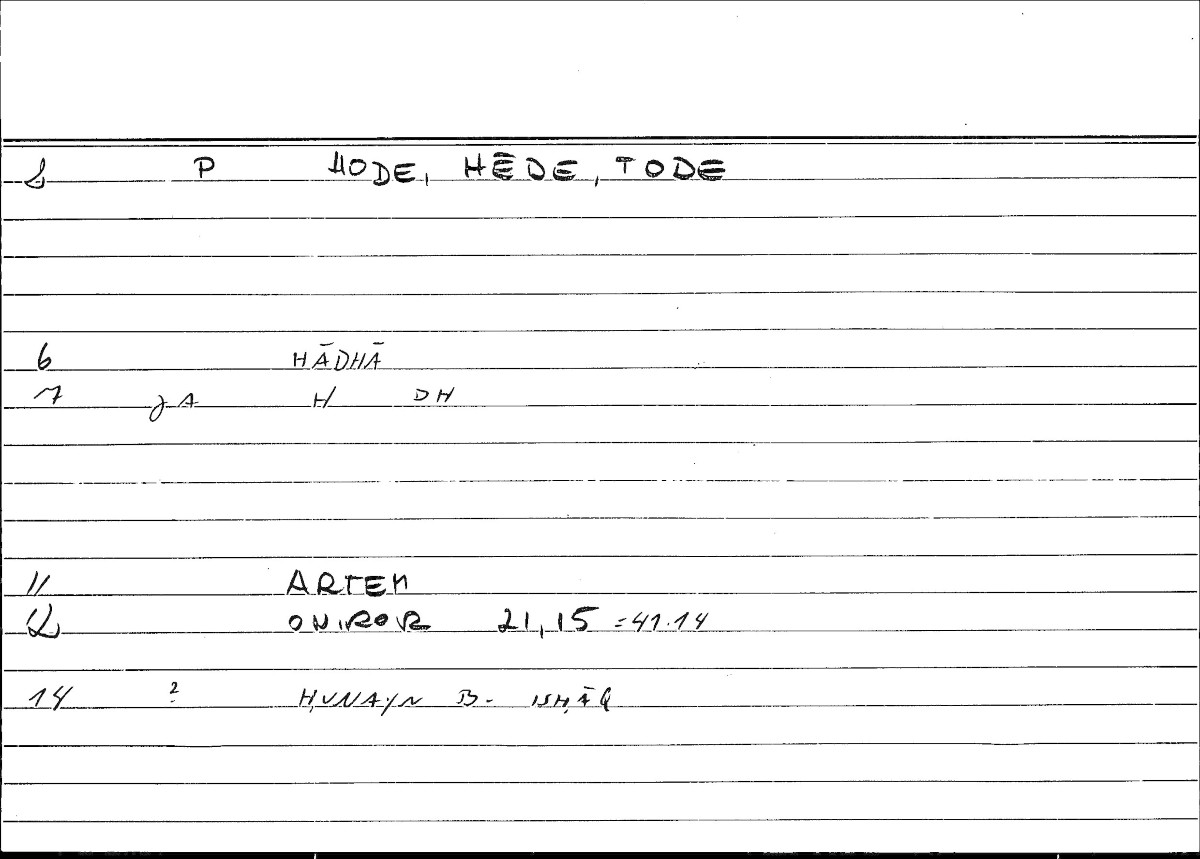 1 P HODE, HĒDE, TODE
6 HĀDHĀ
7 JA H DH
11 ARTEM
12 ONIROR 21,15 =41.14
14 ? ḤUNAYN B. ISḤĀQ